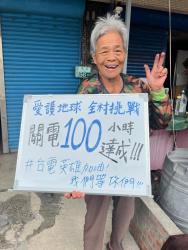 愛護地球 全村挑戰
關電100小時
達成!!!
#台電英雄加油!
我們等你們!!!